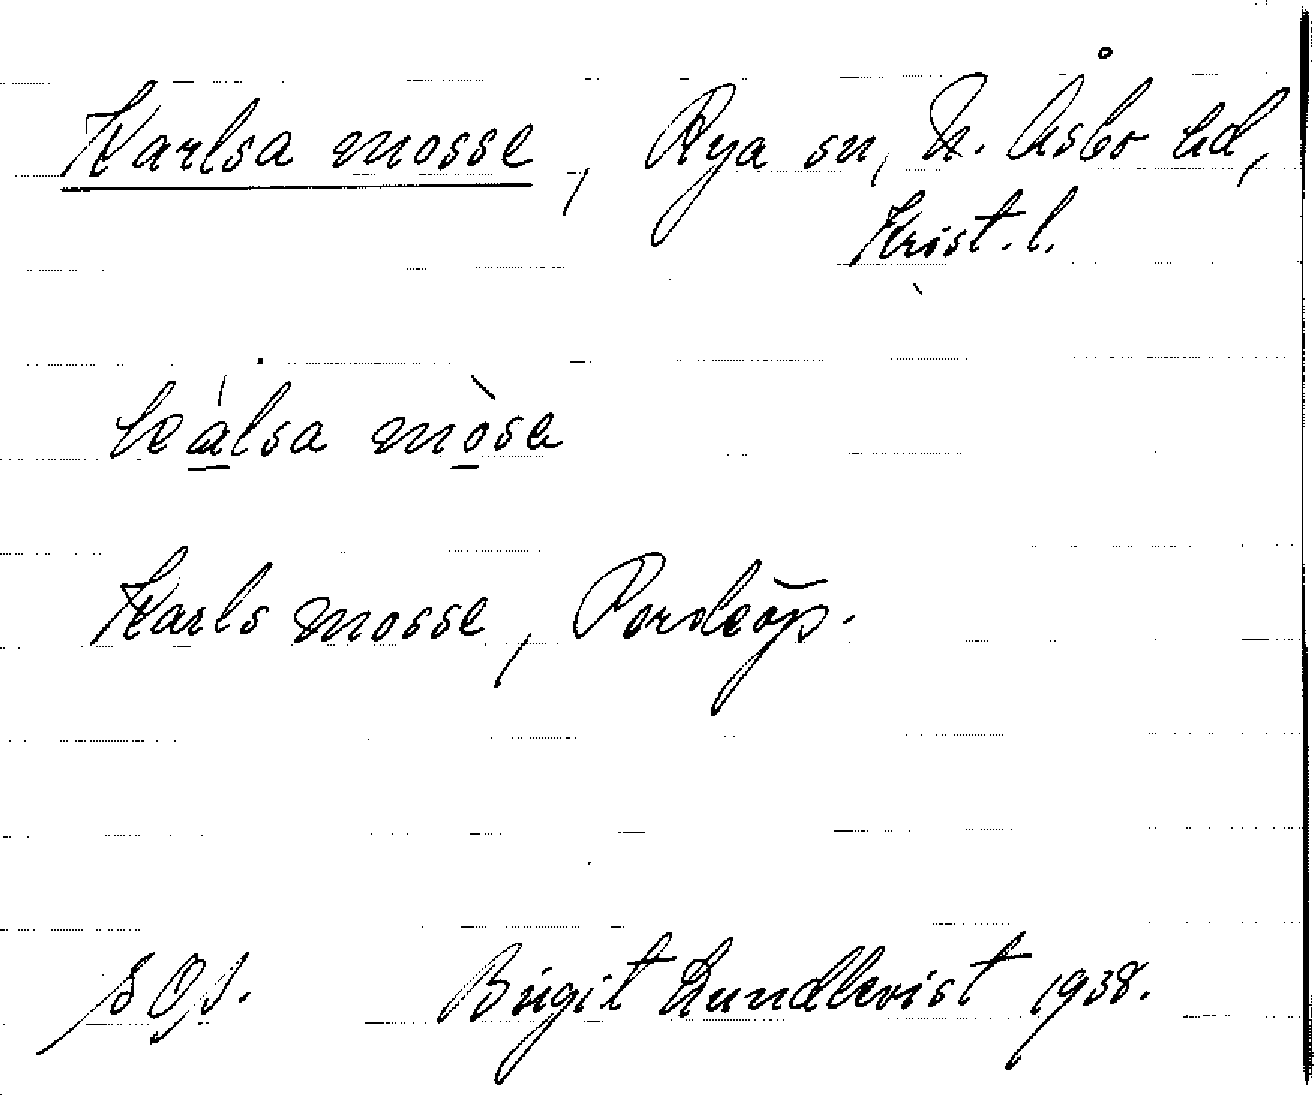 Karlsa mosse, Rya sn, N. Åsbo hd,
Krist. l.
kálsa mòsa
Karls mosse, Pordköp.
Birgit Lundkvist 1938.